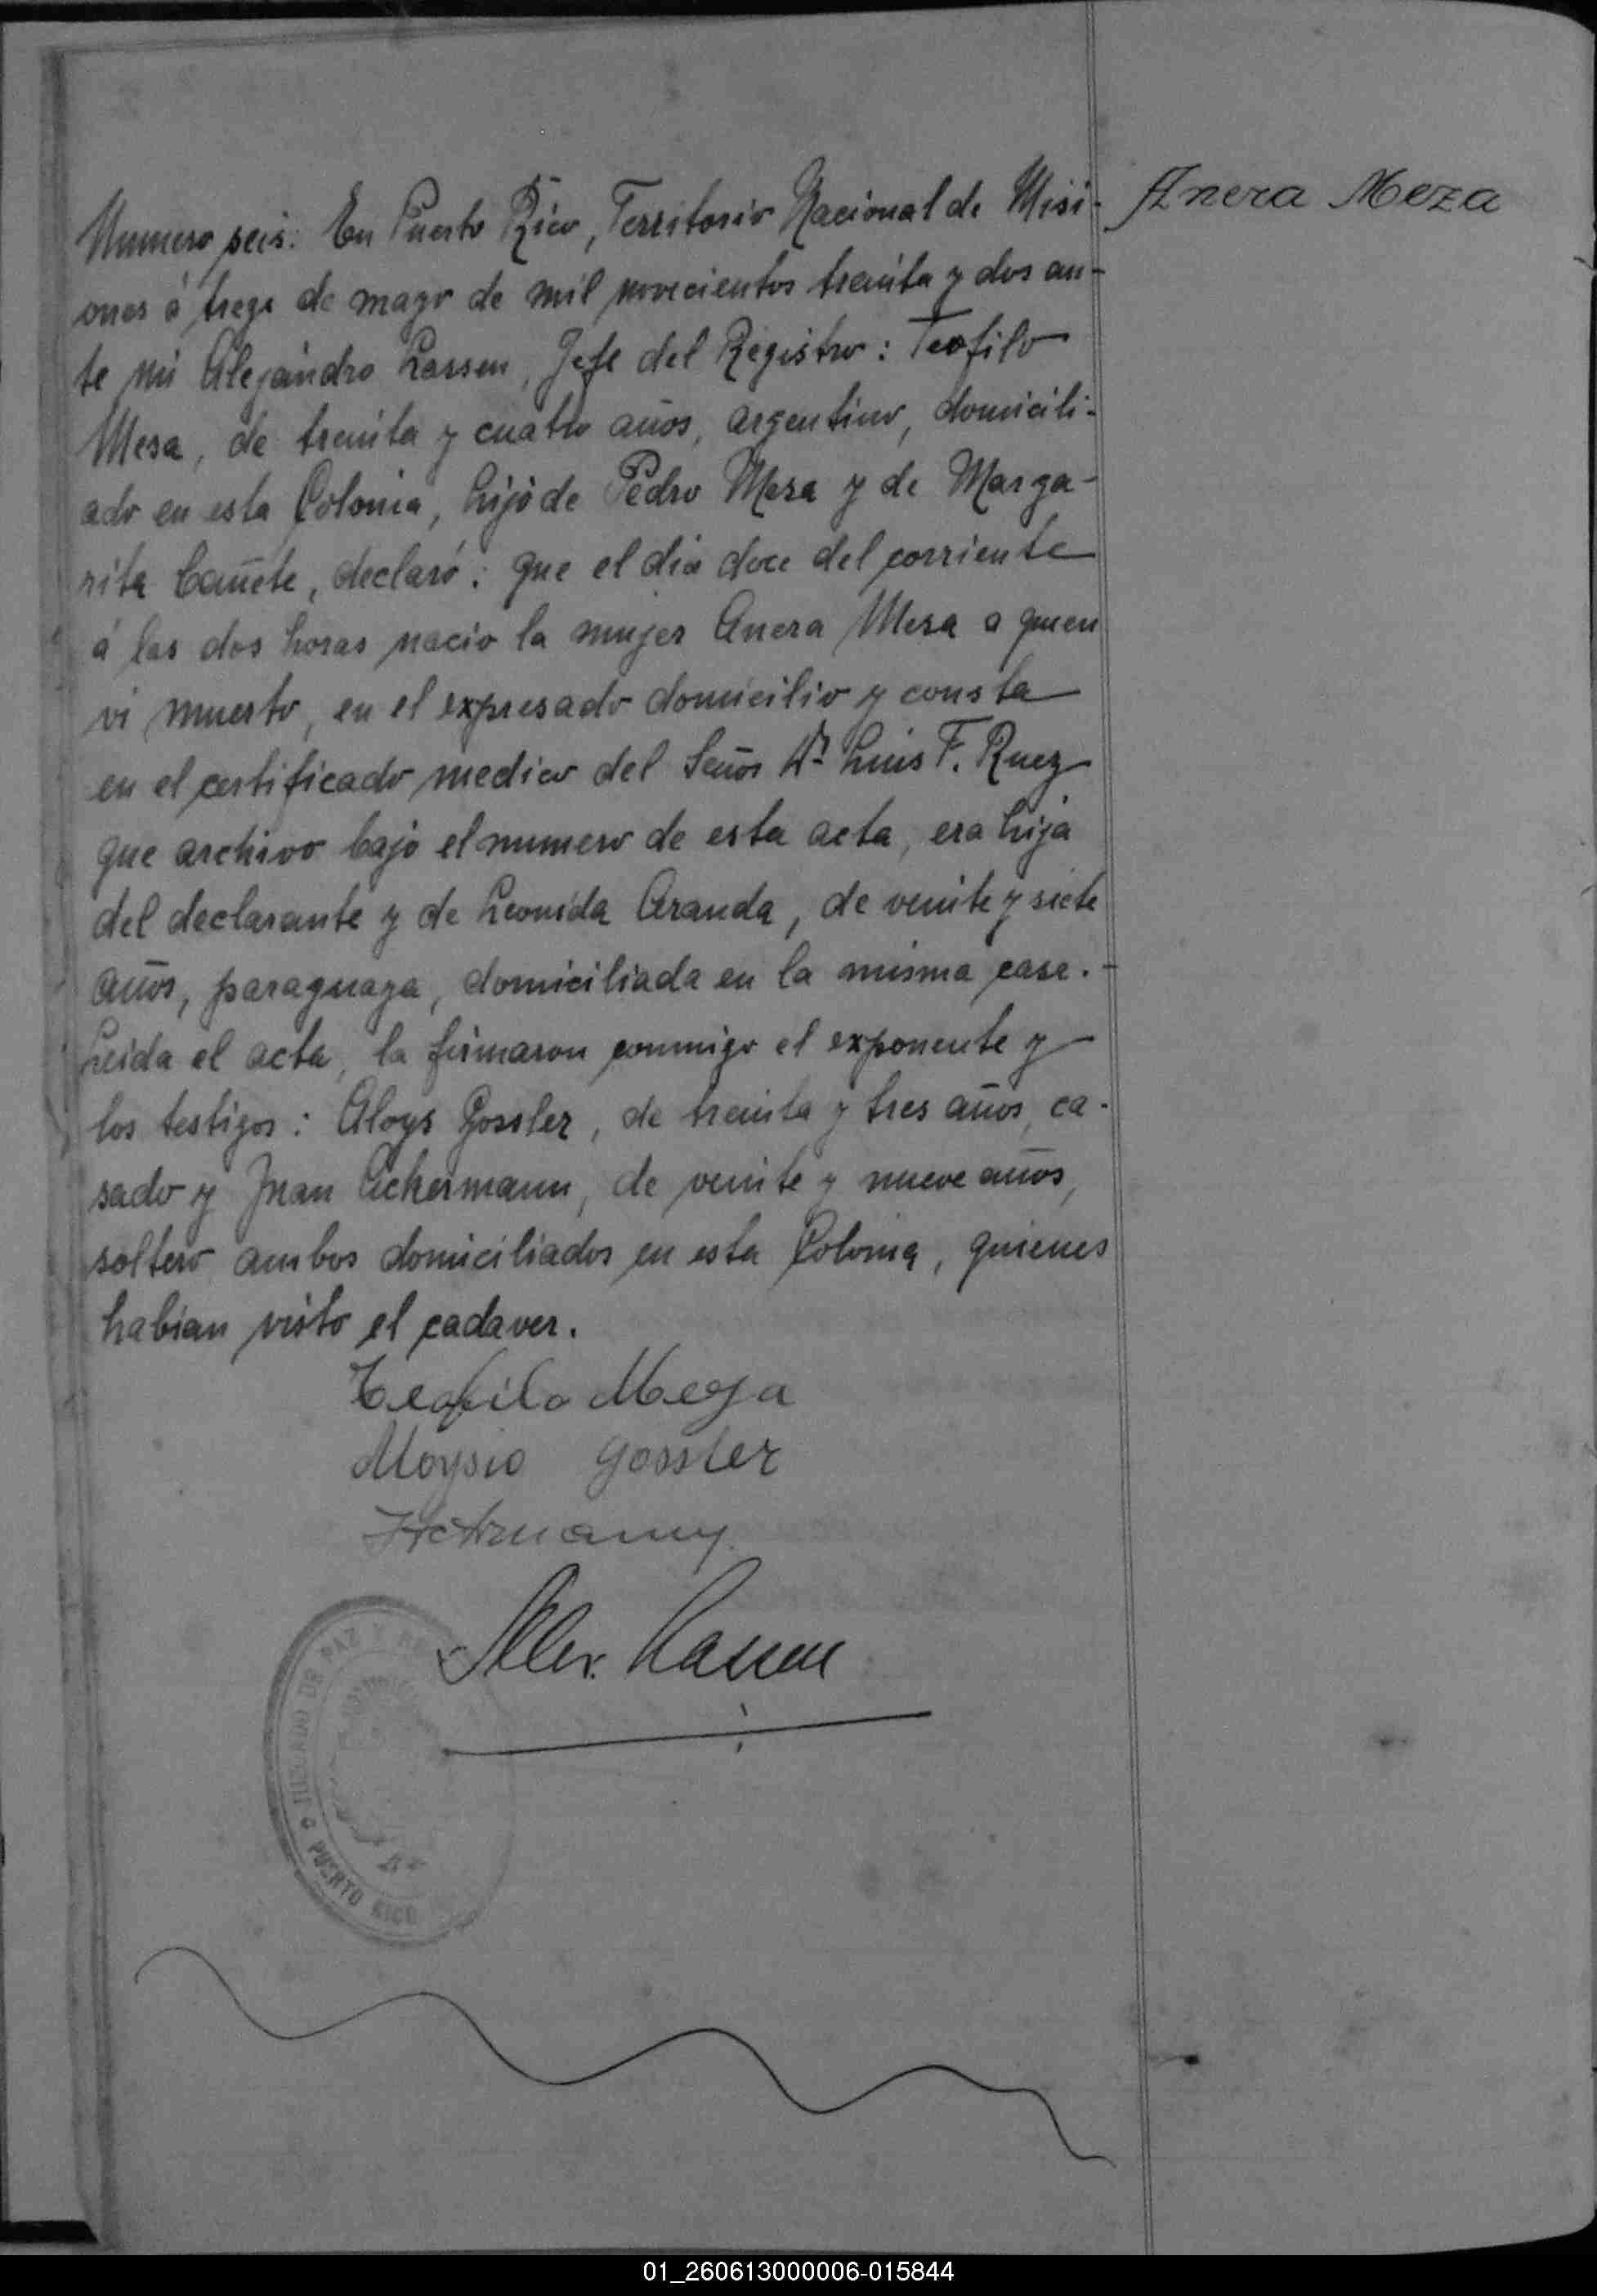 Numero seis: En Puerto Rico, Territorio Nacional de Misi-
ones á treze de mayo de mil novecientos treinta y dos an-
te mi Alejandro Lassen, Jefe del Registro: Teofilo
Mesa, de treinta y cuatro años, argentino, domicili-
ado en esta Colonia, hijo de Pedro Mesa y de Marga-
rita Cañete, declaró: que el dia doce del corriente
á las dos horas nacio la mujer Anera Mesa a quien
vi muerto, en el expresado domicilio y consta
en el certificado medico del Señor Dr. Luis F. Ruez
que archivo bajo el numero de esta acta, era hija
del declarante y de Leonida Aranda, de veinte y siete
años, paraguaya, domiciliada en la misma casa.-
Leida el acta, la firmaron conmigo el exponente y
los testigos: Aloys Gossler, de treinta y tres años, ca-
sado y Juan Ackermann, de veinte y nueve años,
soltero ambos domiciliados en esta Colonia, quienes
habian visto el cadaver.
Anera Meza
Teofilo Meza
Aloysio Gossler
Alex. Lassen
JUZGADO DE PAZ Y
PUERTO RICO
01_260613000006-015844